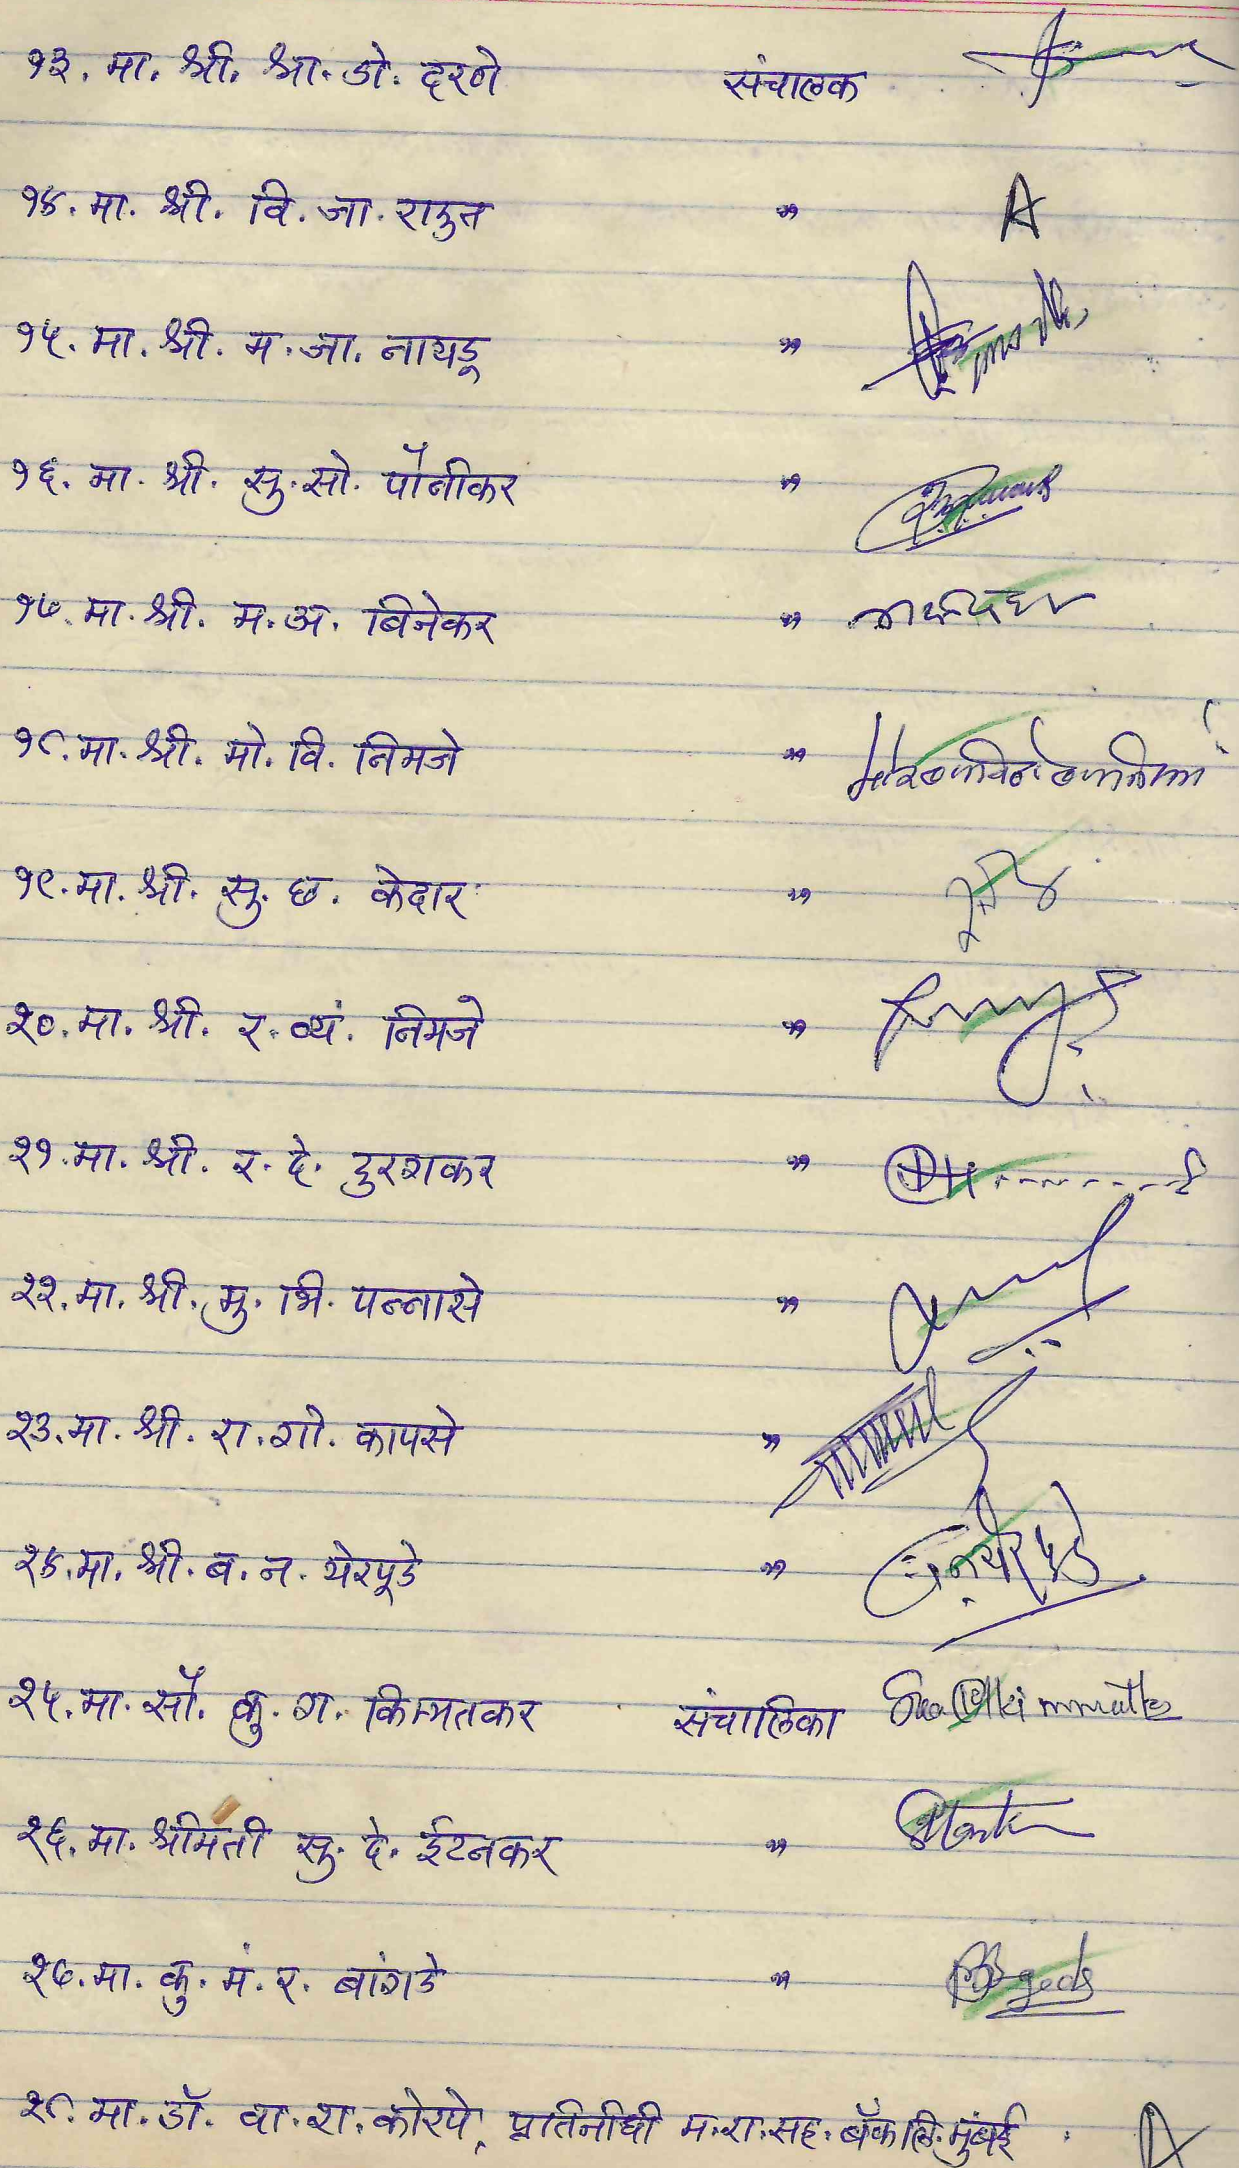 १३. मा. श्री. श्रा. डो. दरणे संचालक
१४. मा. श्री. वि. जा. राऊत " A
१५. मा. श्री. म. जा. नायडू "
१६. मा. श्री. सु. सो. पौनीकर "
१७. मा. श्री. म. अ. बिजेकर "
१८. मा. श्री. मो. वि. निमजे "
१९. मा. श्री. सु. छ. केदार "
२०. मा. श्री. र. व्यं. निमजे "
२१. मा. श्री. र. दे. दुरुगकर "
२२. मा. श्री. मु. भि. पन्नासे "
२३. मा. श्री. रा. गो. कापसे "
२४. मा. श्री. ब. न. येरपूडे "
२५. मा. सौ. कु. ग. किम्मतकर संचालिका
२६. मा. श्रीमती सु. दे. ईटनकर "
२७. मा. कु. मं. र. बांगडे "
२८. मा. डॉ. वा. रा. कोरपे, प्रतिनीधी म. रा. सह. बँक लि. मुंबई. A